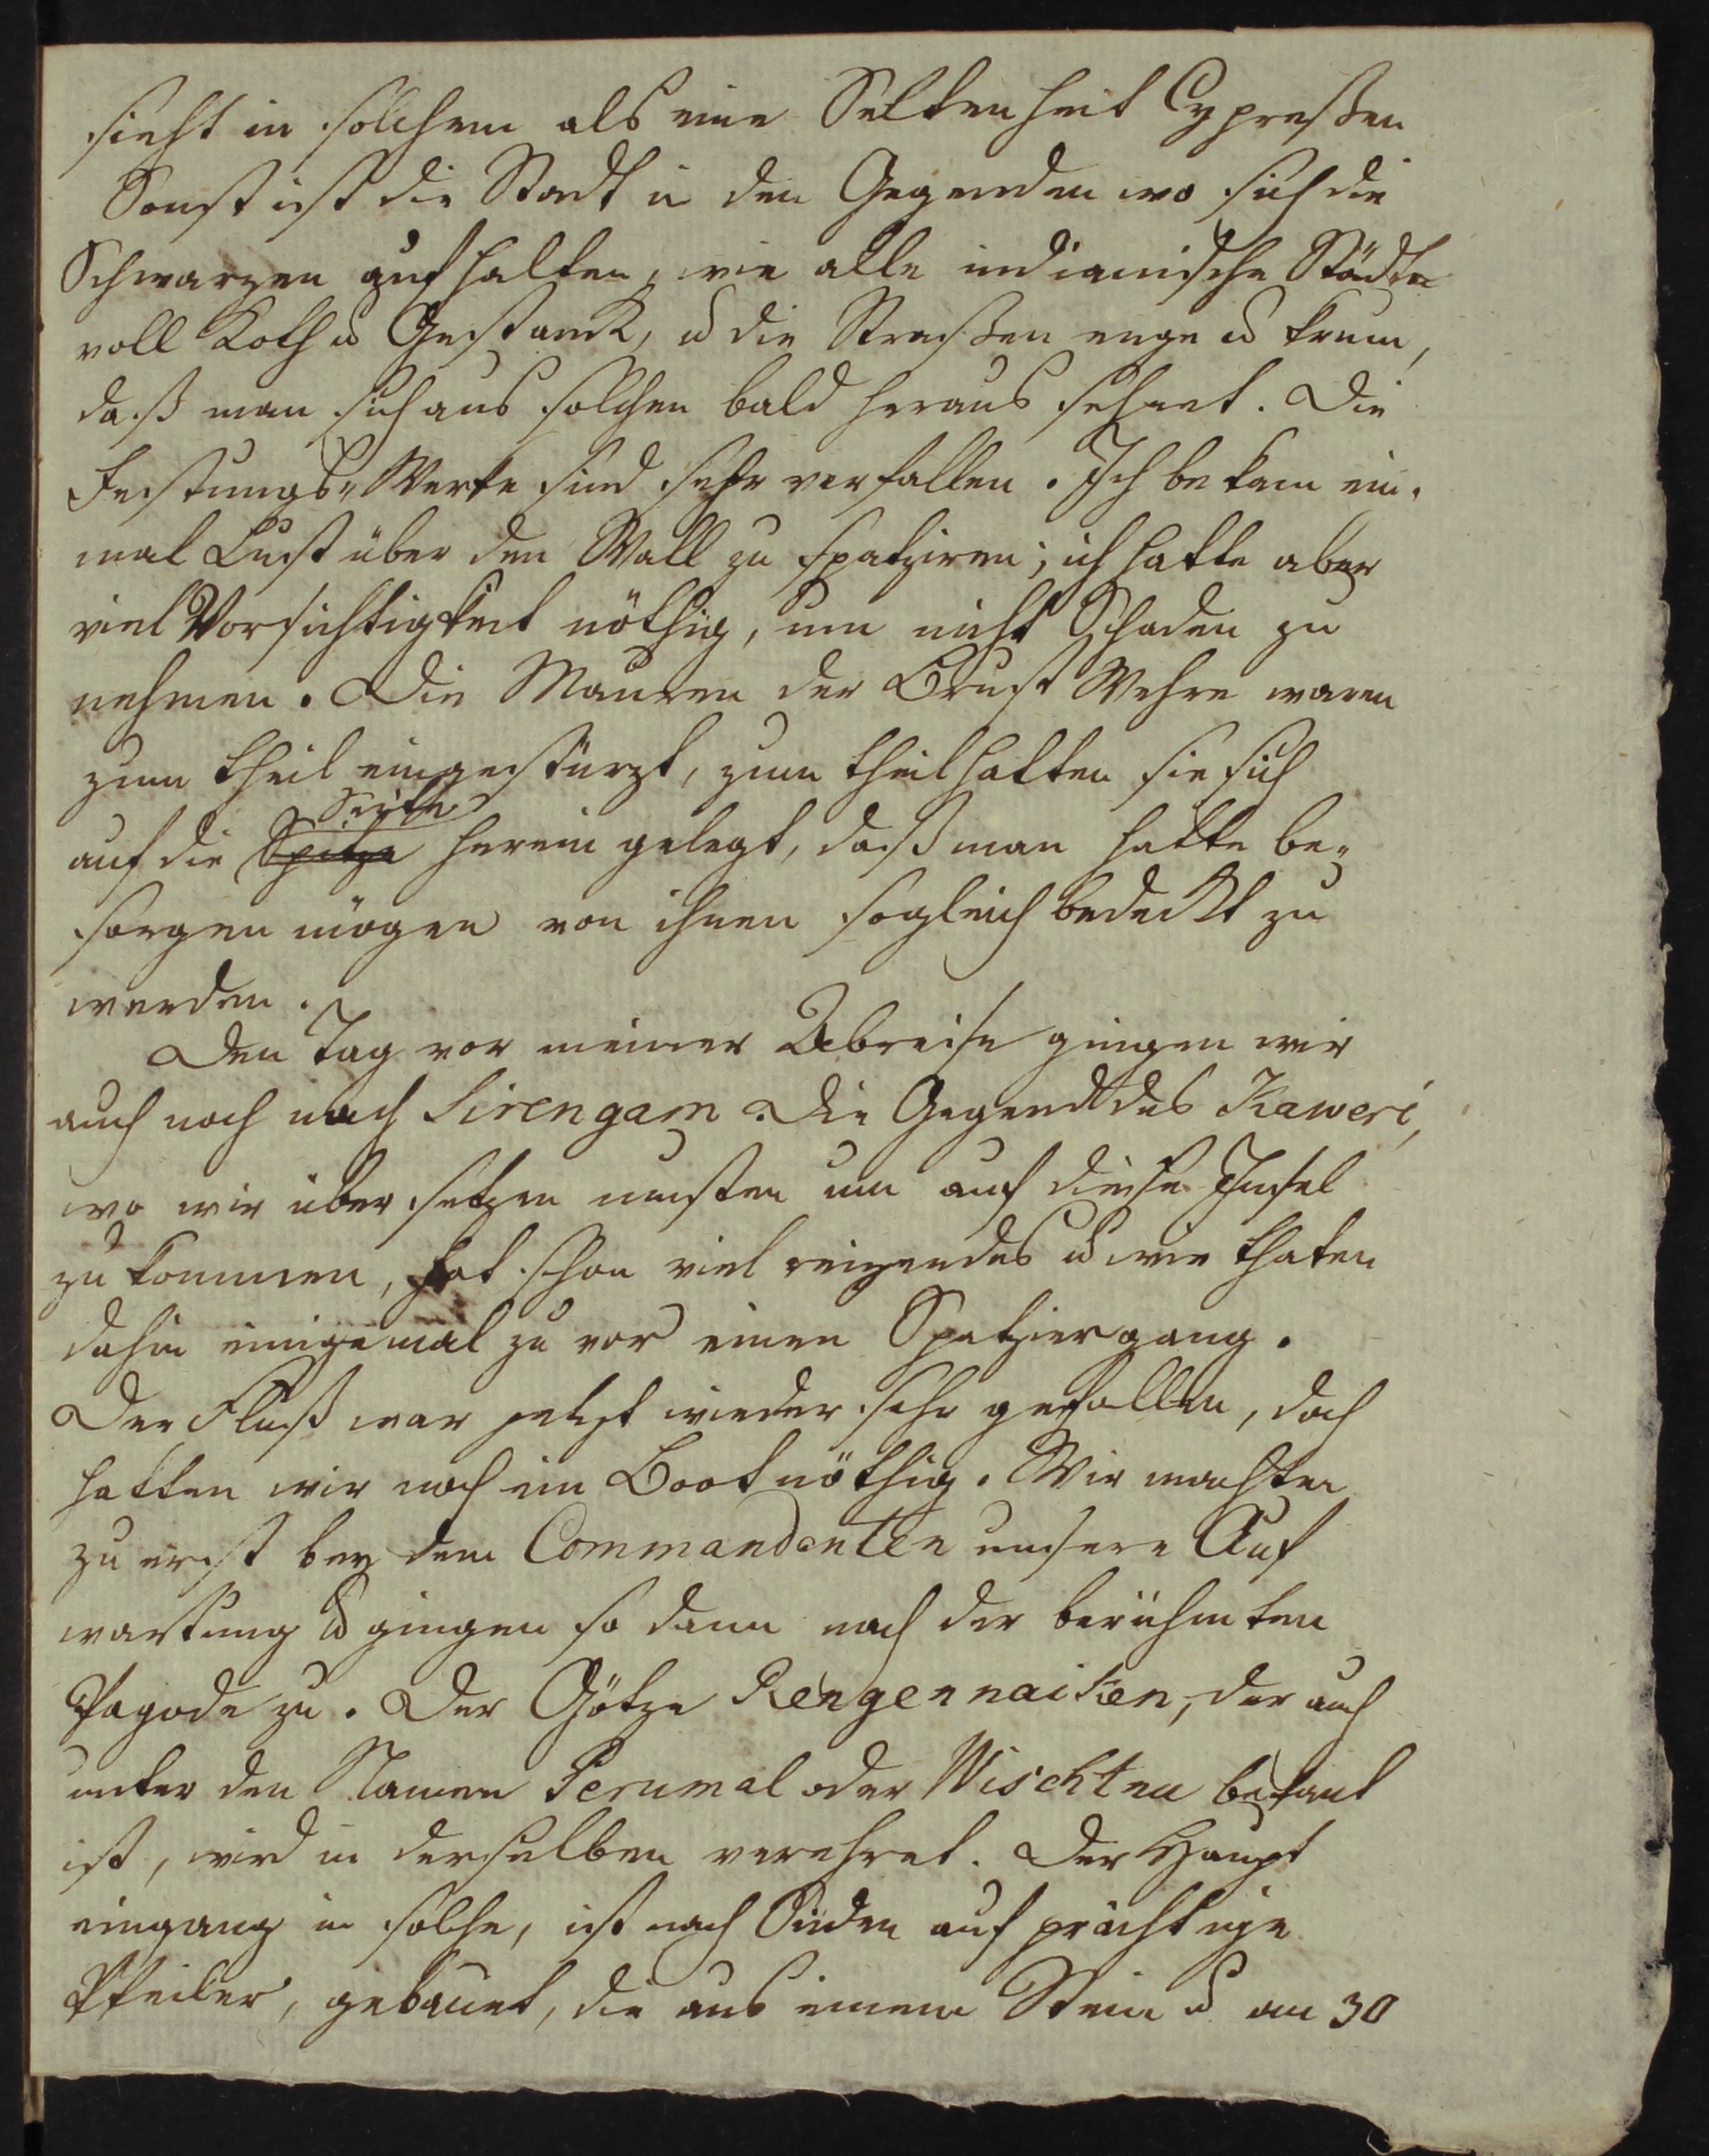 sieht in solchem als eine Seltenheit Cypreßen
Sonst ist die Stadt in den Gegenden wo sich die
Schwarzen aufhalten, wie alle indianische Städte
voll Koth u Gestank, u die Straßen enge u krum,
daß man sich aus solchen bald heraus sehnet. Die
Festungs-Werke sind sehr verfallen. Ich bekam ein-
mal Lust über den Wall zu spatziren; ich hatte aber
viel Vorsichtigkeit nöthig, um nicht Schaden zu
nehmen. Die Mauren der Brust Wehre waren
zum theil eingestürzt, zum theil hatten sie sich
Seite
auf die Spitze herein gelegt, daß man hätte be-
sorgen mögen von ihnen sogleich bedeckt zu
werden.
Den Tag vor meiner Abreise gingen wir
auch noch nach Sirengam. Die Gegend des Kaweri,
wo wir über setzen musten um auf diese Insel
zu kommen, hat schon viel reizendes u wir thaten
dahin einigemal zu vor einen Spatziergang.
Der Fluß war jetzt wieder sehr gefallen, doch
hatten wir noch ein Boot nöthig. Wir machten
zu erst bey dem Commandanten unsere Auf
wartung u gingen so dann nach der berühmten
Pagode zu. Der Götze Rengennaiken, der auch
unter den Namen Perumal oder Wischtnu bekant
ist, wird in derselben verehret. Der Haupt
eingang in solche, ist nach Süden auf prächtige
Pfeiler, gebauet, die aus einem Stein u an 30